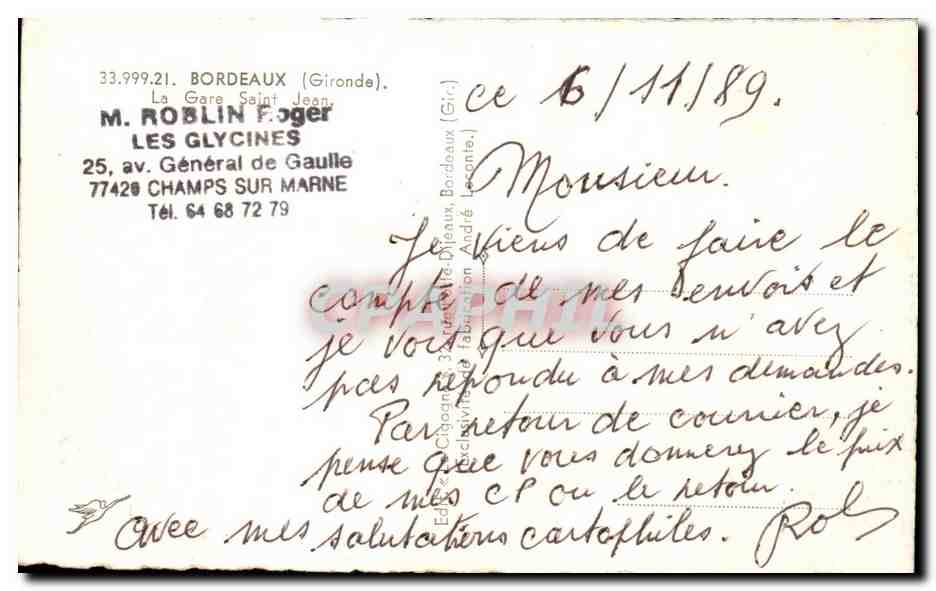 33.999.21. BORDEAUX (Gironde).
La Gare Saint Jean.
M. ROBLIN Roger
LES GLYCINES
25, av. Général de Gaulle
77420 CHAMPS SUR MARNE
Tél. 64 68 72 79
Édit. « Cigogne », 3, rue Porte-Dijeaux, Bordeaux (Gir.)
Exclusivité de fabrication André Leconte.)
ce 6/11/89.
Monsieur.
Je viens de faire le
compte de mes envois et
je vois que vous n'avez
pas repondu à mes demandes.
Par retour de courrier, je
pense que vous donnerez le prix
de mes CP ou le retour.
avec mes salutations cartophiles. Rob
CPAPHIL